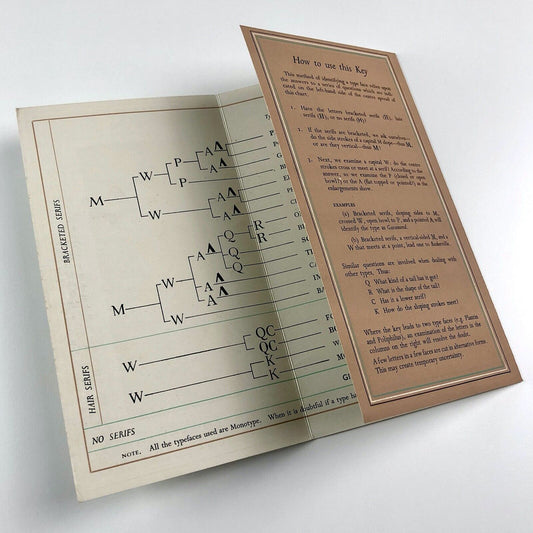 How to use this Key
This method of identifying a type face relies upon
the answers to a series of questions which are indi-
cated on the left-hand side of the centre spread of
this chart.
1. Have the letters bracketed serifs (H), hair
serifs (H), or no serifs (H)?
2. If the serifs are bracketed, we ask ourselves—
do the side strokes of a capital M slope—thus M,
or are they vertical—thus M?
3. Next, we examine a capital W; do the centre
strokes cross or meet at a serif? According to the
answer, so we examine the P (closed or open
bowl?) or the A (flat topped or pointed?), in the
enlargements show.
EXAMPLES
(a) Bracketed serifs, sloping sides to M,
crossed W, open bowl to P, and a pointed A will
identify the type as Garamond.
(b) Bracketed serifs, a vertical-sided M, and a
W that meets at a point, lead one to Baskerville.
Similar questions are involved when dealing with
other types, Thus:
Q What kind of a tail has it got?
R What is the shape of the tail?
C Has it a lower serif?
K How do the sloping strokes meet?
Where the key leads to two type faces (e.g. Plantin
and Poliphilus), an examination of the letters in the
columns on the right will resolve the doubt.
A few letters in a few faces are cut in alternative forms.
This may create temporary uncertainty.
BRACKETED SERIFS
M W P A A
P A A
W A A
M W A Q R
R
Q
Q
A A
A
W
HAIR SERIFS
W QC
QC
W K
K
NO SERIFS
NOTE. All the typefaces used are Monotype. When it is doubtful if a type ha